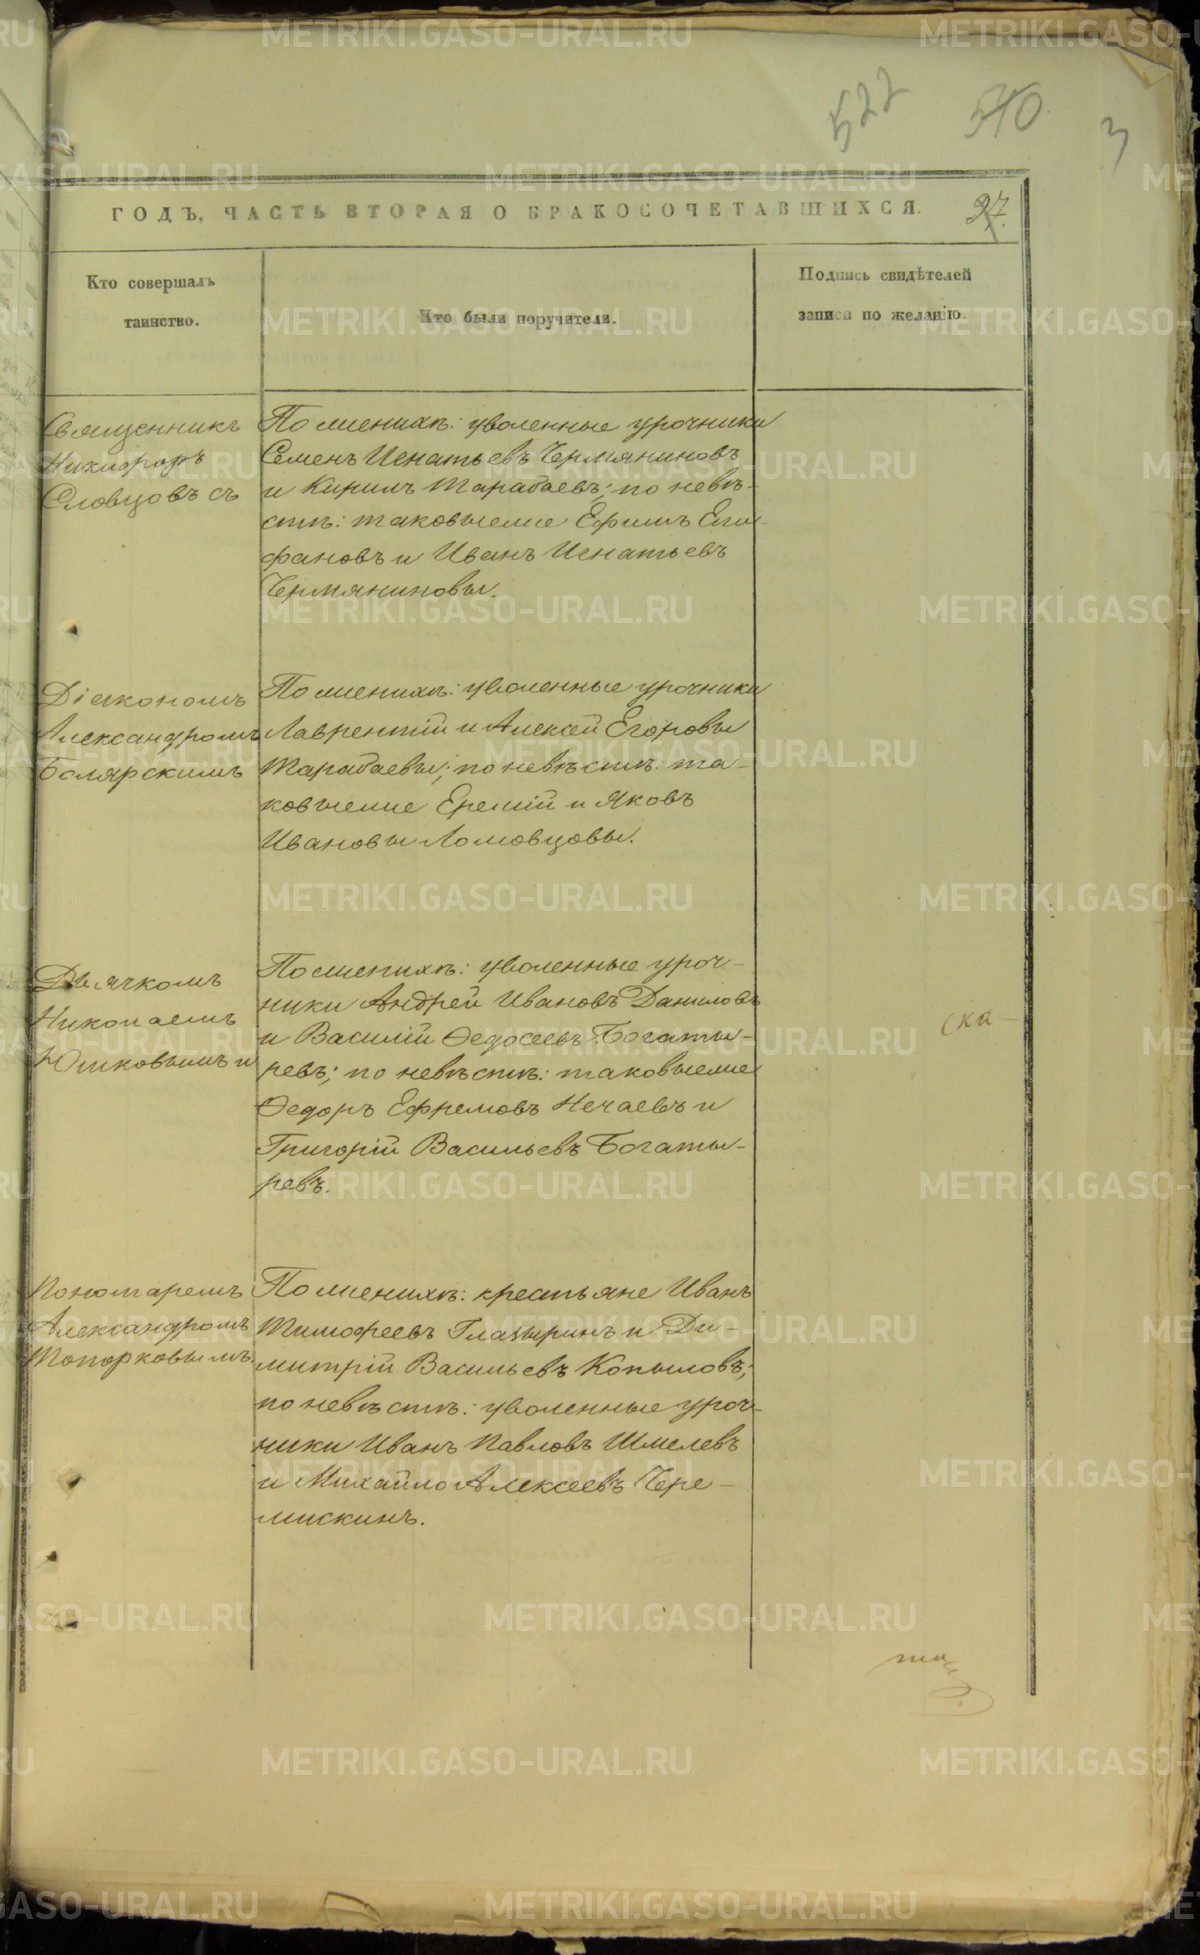 522 510 3
ГОДЪ, ЧАСТЬ ВТОРАЯ О БРАКОСОЧЕТАВШИХСЯ. 27.
Кто совершалъ
таинство.
Кто были поручители.
Подпись свидѣтелей
записи по желанію.
Священникъ
Никифоръ
Словцовъ съ
По женихѣ: уволенные урочники
Семенъ Игнатьевъ Чермяниновъ
и Кирилъ Тарабаевъ; по невѣ-
стѣ: таковыеже Ефимъ Епи-
фановъ и Иванъ Игнатьевъ
Чермяниновы.
Діакономъ
Александромъ
Болярскимъ
По женихѣ: уволенные урочники
Лаврентій и Алексей Егоровы
Тарабаевы; по невѣстѣ: та-
ковыеже Еремій и Яковъ
Ивановы Ломовцовы.
Дьячкомъ
Николаемъ
Юшковымъ и
По женихѣ: уволенные уроч-
ники Андрей Ивановъ Даниловъ
и Василій Ѳедосеевъ Богаты-
ревъ; по невѣстѣ: таковыеже
Ѳедоръ Ефремовъ Нечаевъ и
Григорій Васильевъ Богаты-
ревъ.
ска-
Пономаремъ
Александромъ
Топорковымъ.
По женихѣ: крестьяне Иванъ
Тимофеевъ Глазыринъ и Ди-
митрій Васильевъ Копыловъ;
по невѣстѣ: уволенные уроч-
ники Иванъ Павловъ Шмелевъ
и Михайло Алексеевъ Чере-
мискинъ.
METRIKI.GASO-URAL.RU